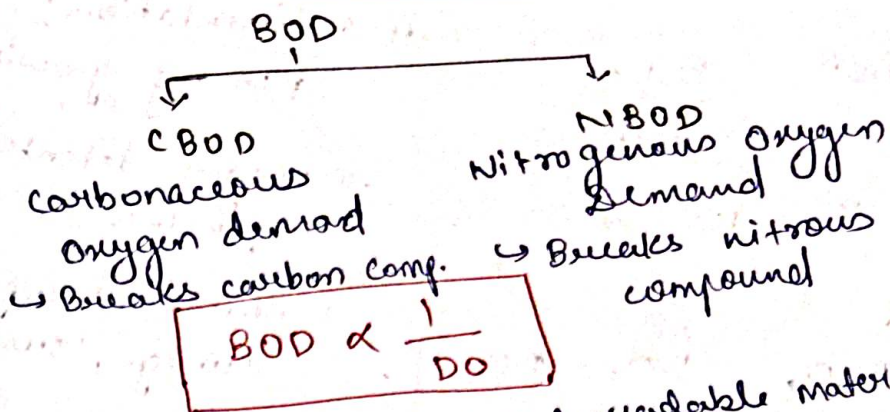 BOD
CBOD
Carbonaceous
oxygen demad
↳ Breaks carbon comp.
NBOD
Nitrogenous Oxygen
Demand
↳ Breaks nitrous
compound
BOD ∝ 1/DO
mater